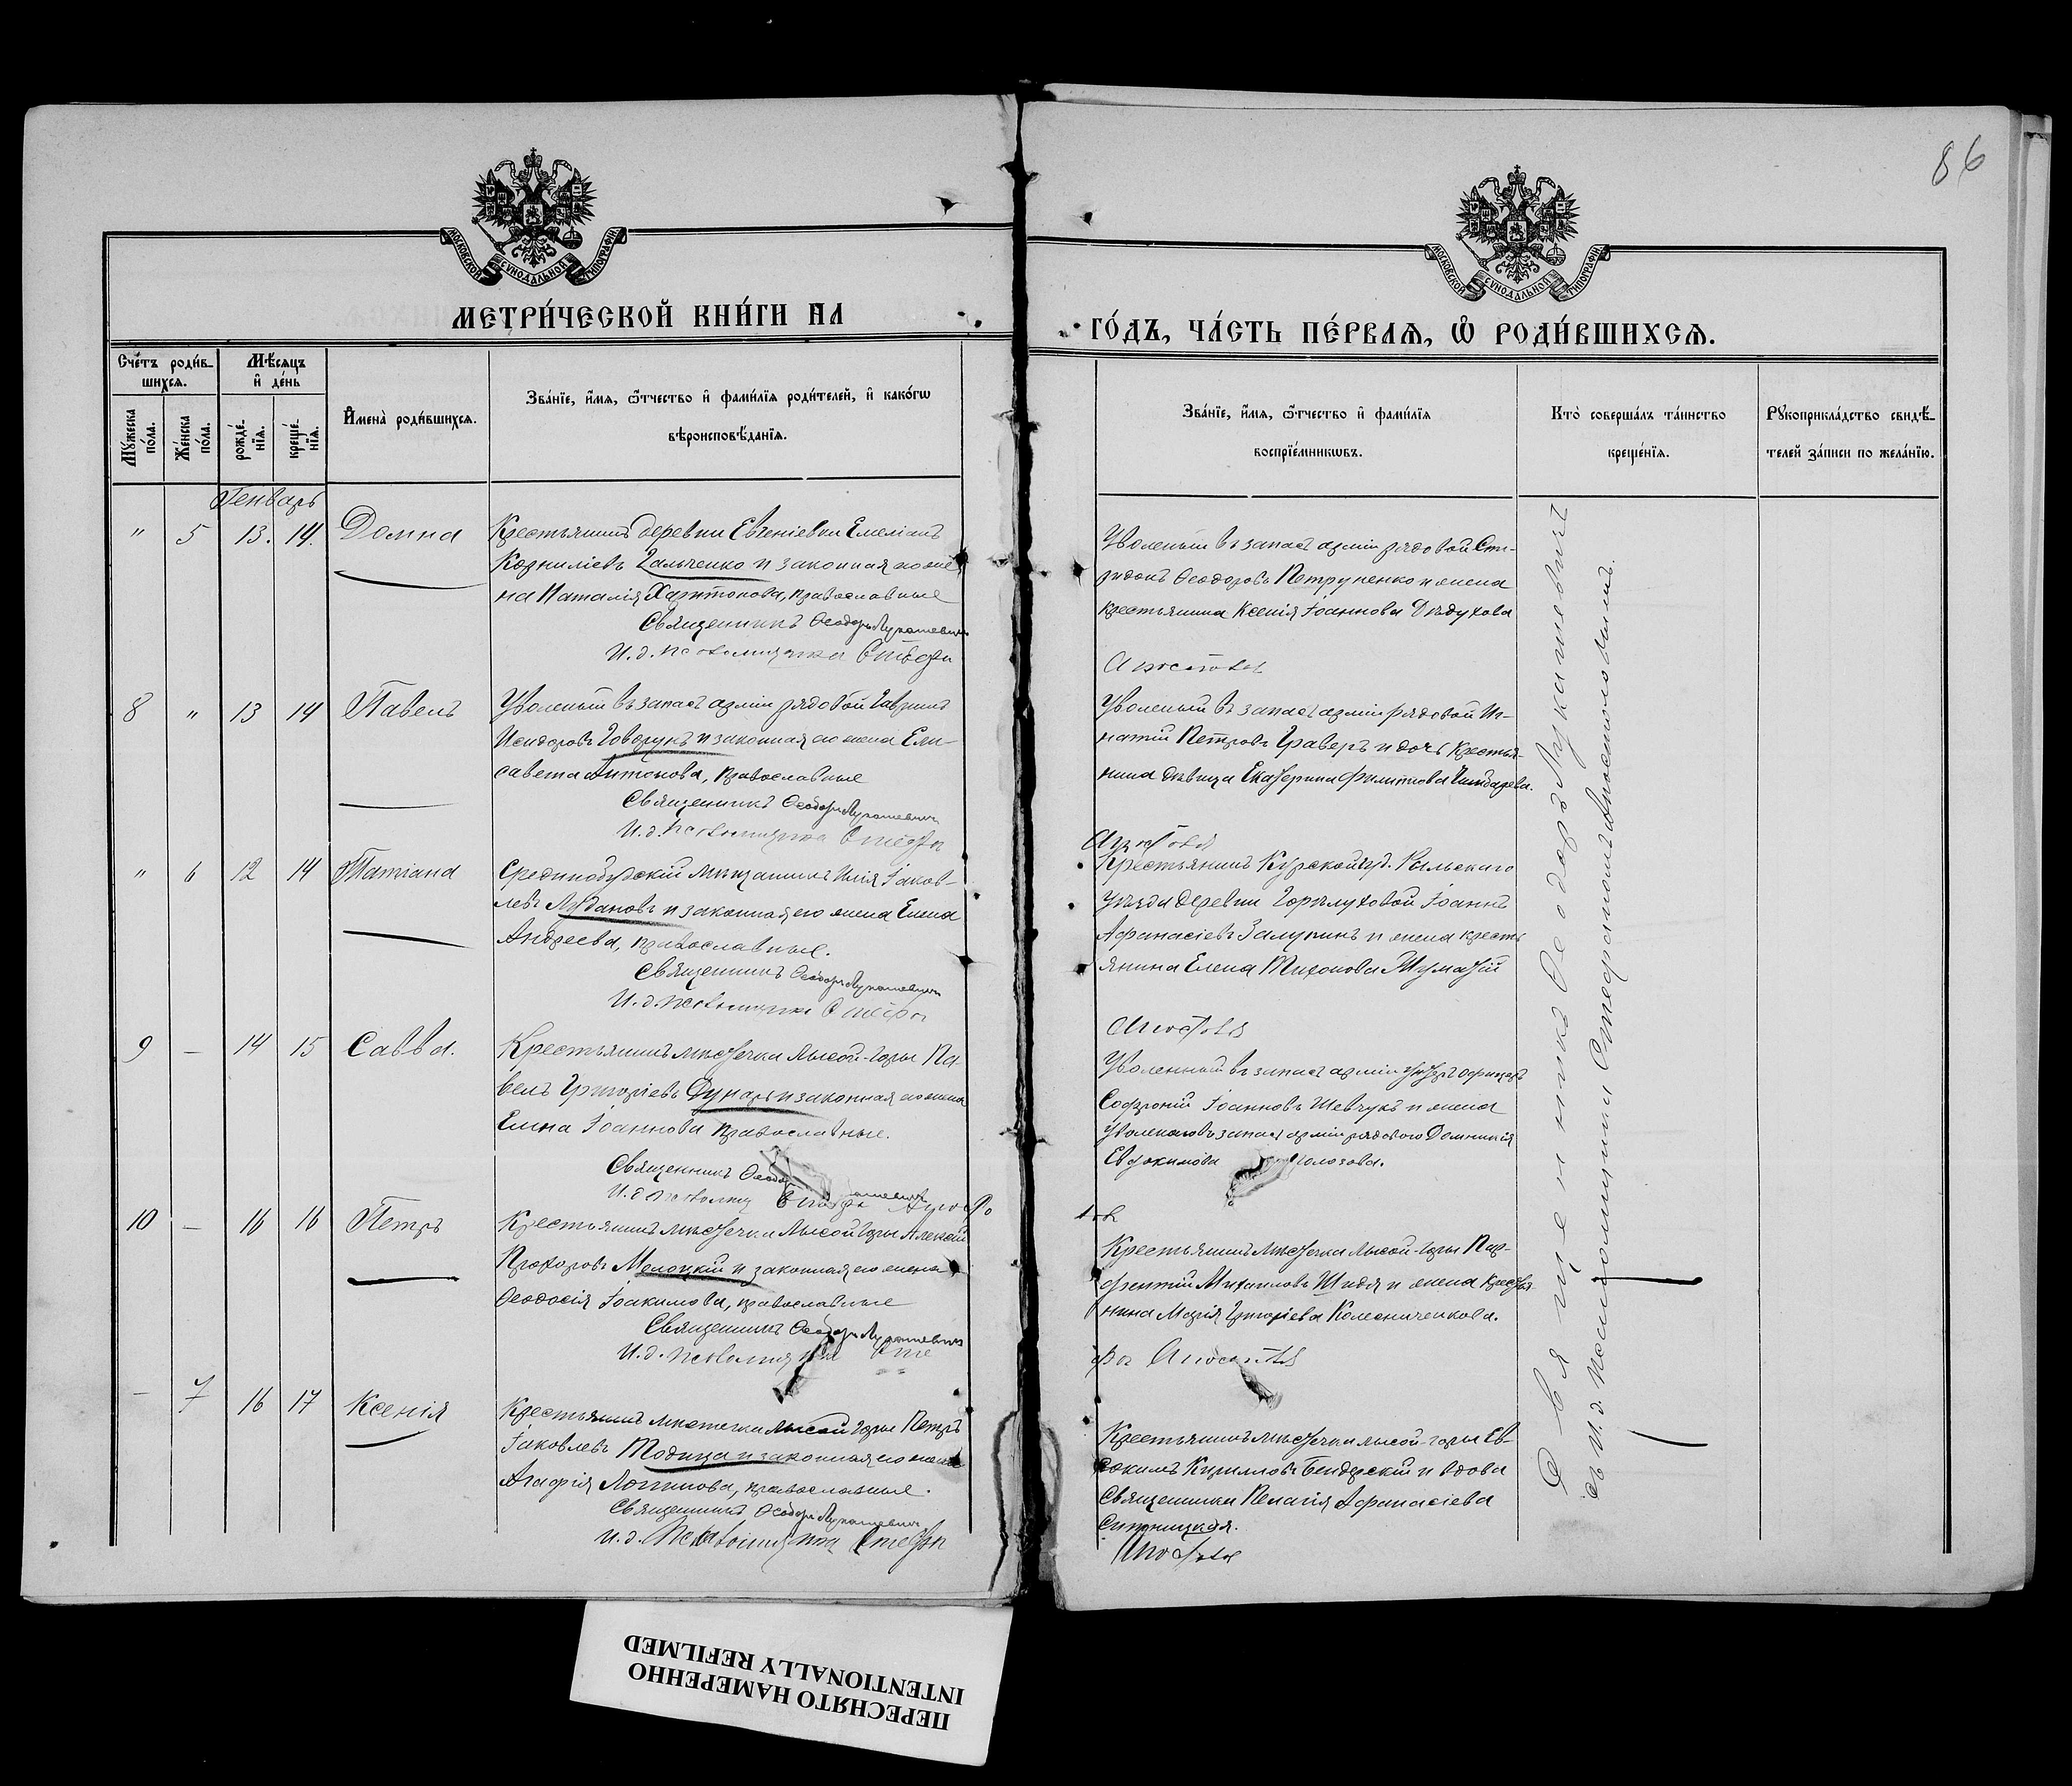 86
МОСКОВСКОЙ СУНОДАЛЬНОЙ ТИПОГРАФІИ
МОСКОВСКОЙ СУНОДАЛЬНОЙ ТИПОГРАФІИ
МЕТРИ́ЧЕСКОЙ КНИ́ГИ НА
ГО́ДЪ, ЧА́СТЬ ПЕ́РВАЯ, Ѡ РОДИ́ВШИХСЯ.
Сче́тъ роди́в-
шихся.
Мѣ́сяцъ
и҆ де́нь
Мꙋ́жеска по́ла.
Же́нска по́ла.
рожде́-нїѧ.
креще́-нїѧ.
И҆мена̀ роди́вшихся.
Зва́нїе, и҆́мя, ѻ҆́тчество и҆ фами́лїя роди́телей, и҆ како́гѡ
вѣроисповѣ́данїя.
Зва́нїе, и҆́мя, ѻ҆́тчество и҆ фами́лїя
воспрїе́мникѡвъ.
Кто̀ соверша́лъ та́инство
креще́нїя.
Рꙋкоприкла́дство свидѣ́-
телей за́писи по жела́нїю.
Генварь
" 5 13. 14. Домна
Крестьянинъ деревни Евгеніевки Емеліанъ
Корниліевъ Гальченко и законная его же-
на Наталія Харитонова, православные
Священникъ Ѳеодоръ Лукашевичъ
И. д. псаломщика Стефа
Уволеный въ запасъ арміи рядовой Спи-
ридонъ Ѳеодоровъ Петруненко и жена
крестьянина Ксенія Іоаннова Дѣдухова
Апостолъ
8 " 13 14 Павелъ
Уволеный въ запасъ арміи рядовой Гавріилъ
Исидоровъ Говорукъ и законная его жена Ели-
савета Антонова, православные
Священникъ Ѳеодоръ Лукашевичъ
И. д. псаломщика Стефа
Уволеный въ запасъ арміи рядовой Иг-
натій Петровъ Граверъ и дочь крестья-
нина дѣвица Екатерина Филиппова
Апостолъ
" 6 12 14 Татіана
Срединобудскій мѣщанинъ Илія Іаков-
левъ Лудановъ и законная его жена Елена
Андреева, православные.
Священникъ Ѳеодоръ Лукашевичъ
И. д. псаломщика Стефа
Крестьянинъ Курской губ. Рыльскаго
уѣзда деревни Іоаннъ
Афанасіевъ Залупинъ и жена кресть
янина Елена Тихонова
Апостолъ
9 — 14 15 Савва.
Крестьянинъ мѣстечка Лысой-Горы Па-
велъ Григоріевъ Дунаръ и законная его жена
Елена Іоаннова православные.
Священникъ Ѳеодоръ
И. д. псаломщ Стефа Апосто
Уволенный въ запасъ арміи унтеръ офицеръ
Софроній Іоанновъ Шевчукъ и жена
уволенаго въ запасъ арміи рядового Домникія
Евдокимова
10 — 16 16 Петръ
Крестьянинъ мѣстечка Лысой Горы Алексій
Прохоровъ Мелоцкій и законная его жена
Ѳеодосія Іоакимова, православные
Священникъ Ѳеодоръ Лукашевичъ
И. д. псаломщика Сте
Крестьянинъ мѣстечка Лысой-Горы Пар-
фентій Михаиловъ Шидя и жена крестья-
нина Марія Григоріева Колесниченкова.
фа Апостолъ
— 7 16 17 Ксенія
Крестьянинъ мѣстечка Лысой Горы Петръ
Іаковлевъ Тодица и законная его жена
Агафія Логинова, православные.
Священникъ Ѳеодоръ Лукашевичъ
И. д. Псаломщика Стефа
Крестьянинъ мѣстечка Лысой-Горы Ев-
докимъ Кирилловъ Бендерскій и вдова
Священника Пелагія Афанасіева
Апостолъ
Священникъ Ѳеодоръ Лукашевичъ
съ И. д. псаломщика Стефаномъ Апостоловымъ.
ПЕРЕСНЯТО НАМЕРЕННО
INTENTIONALLY REFILMED